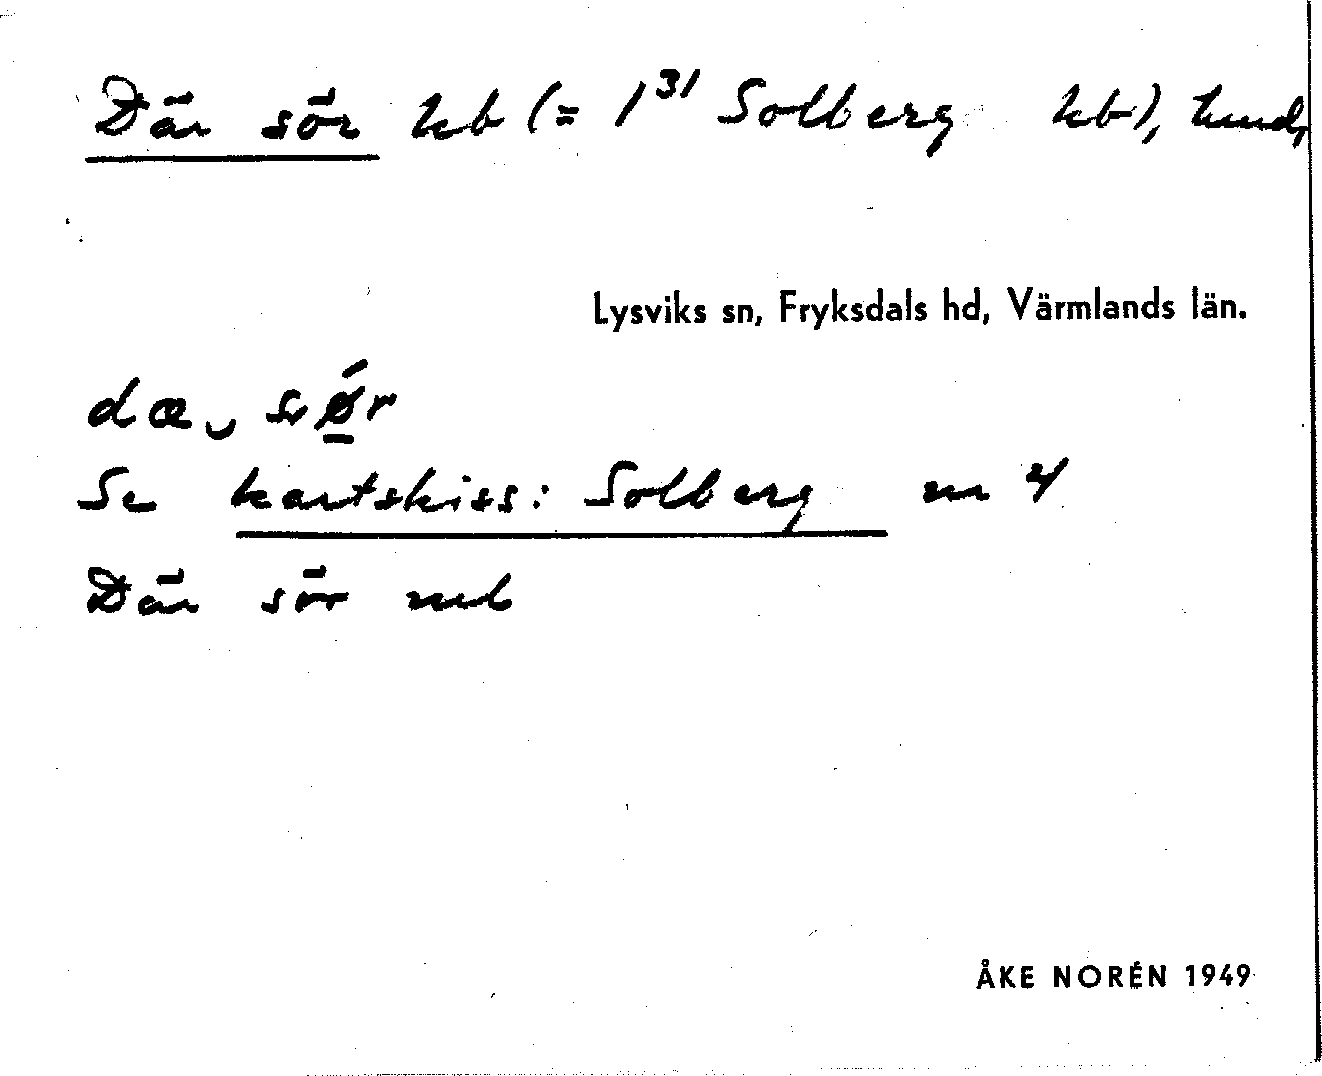 Där sör kb (= 1³¹ Solberg kb), hmd,
Lysviks sn, Fryksdals hd, Värmlands län.
dæ‿ sǿr
Se kartskiss: Solberg nr 4
Där sör
ÅKE NORÉN 1949